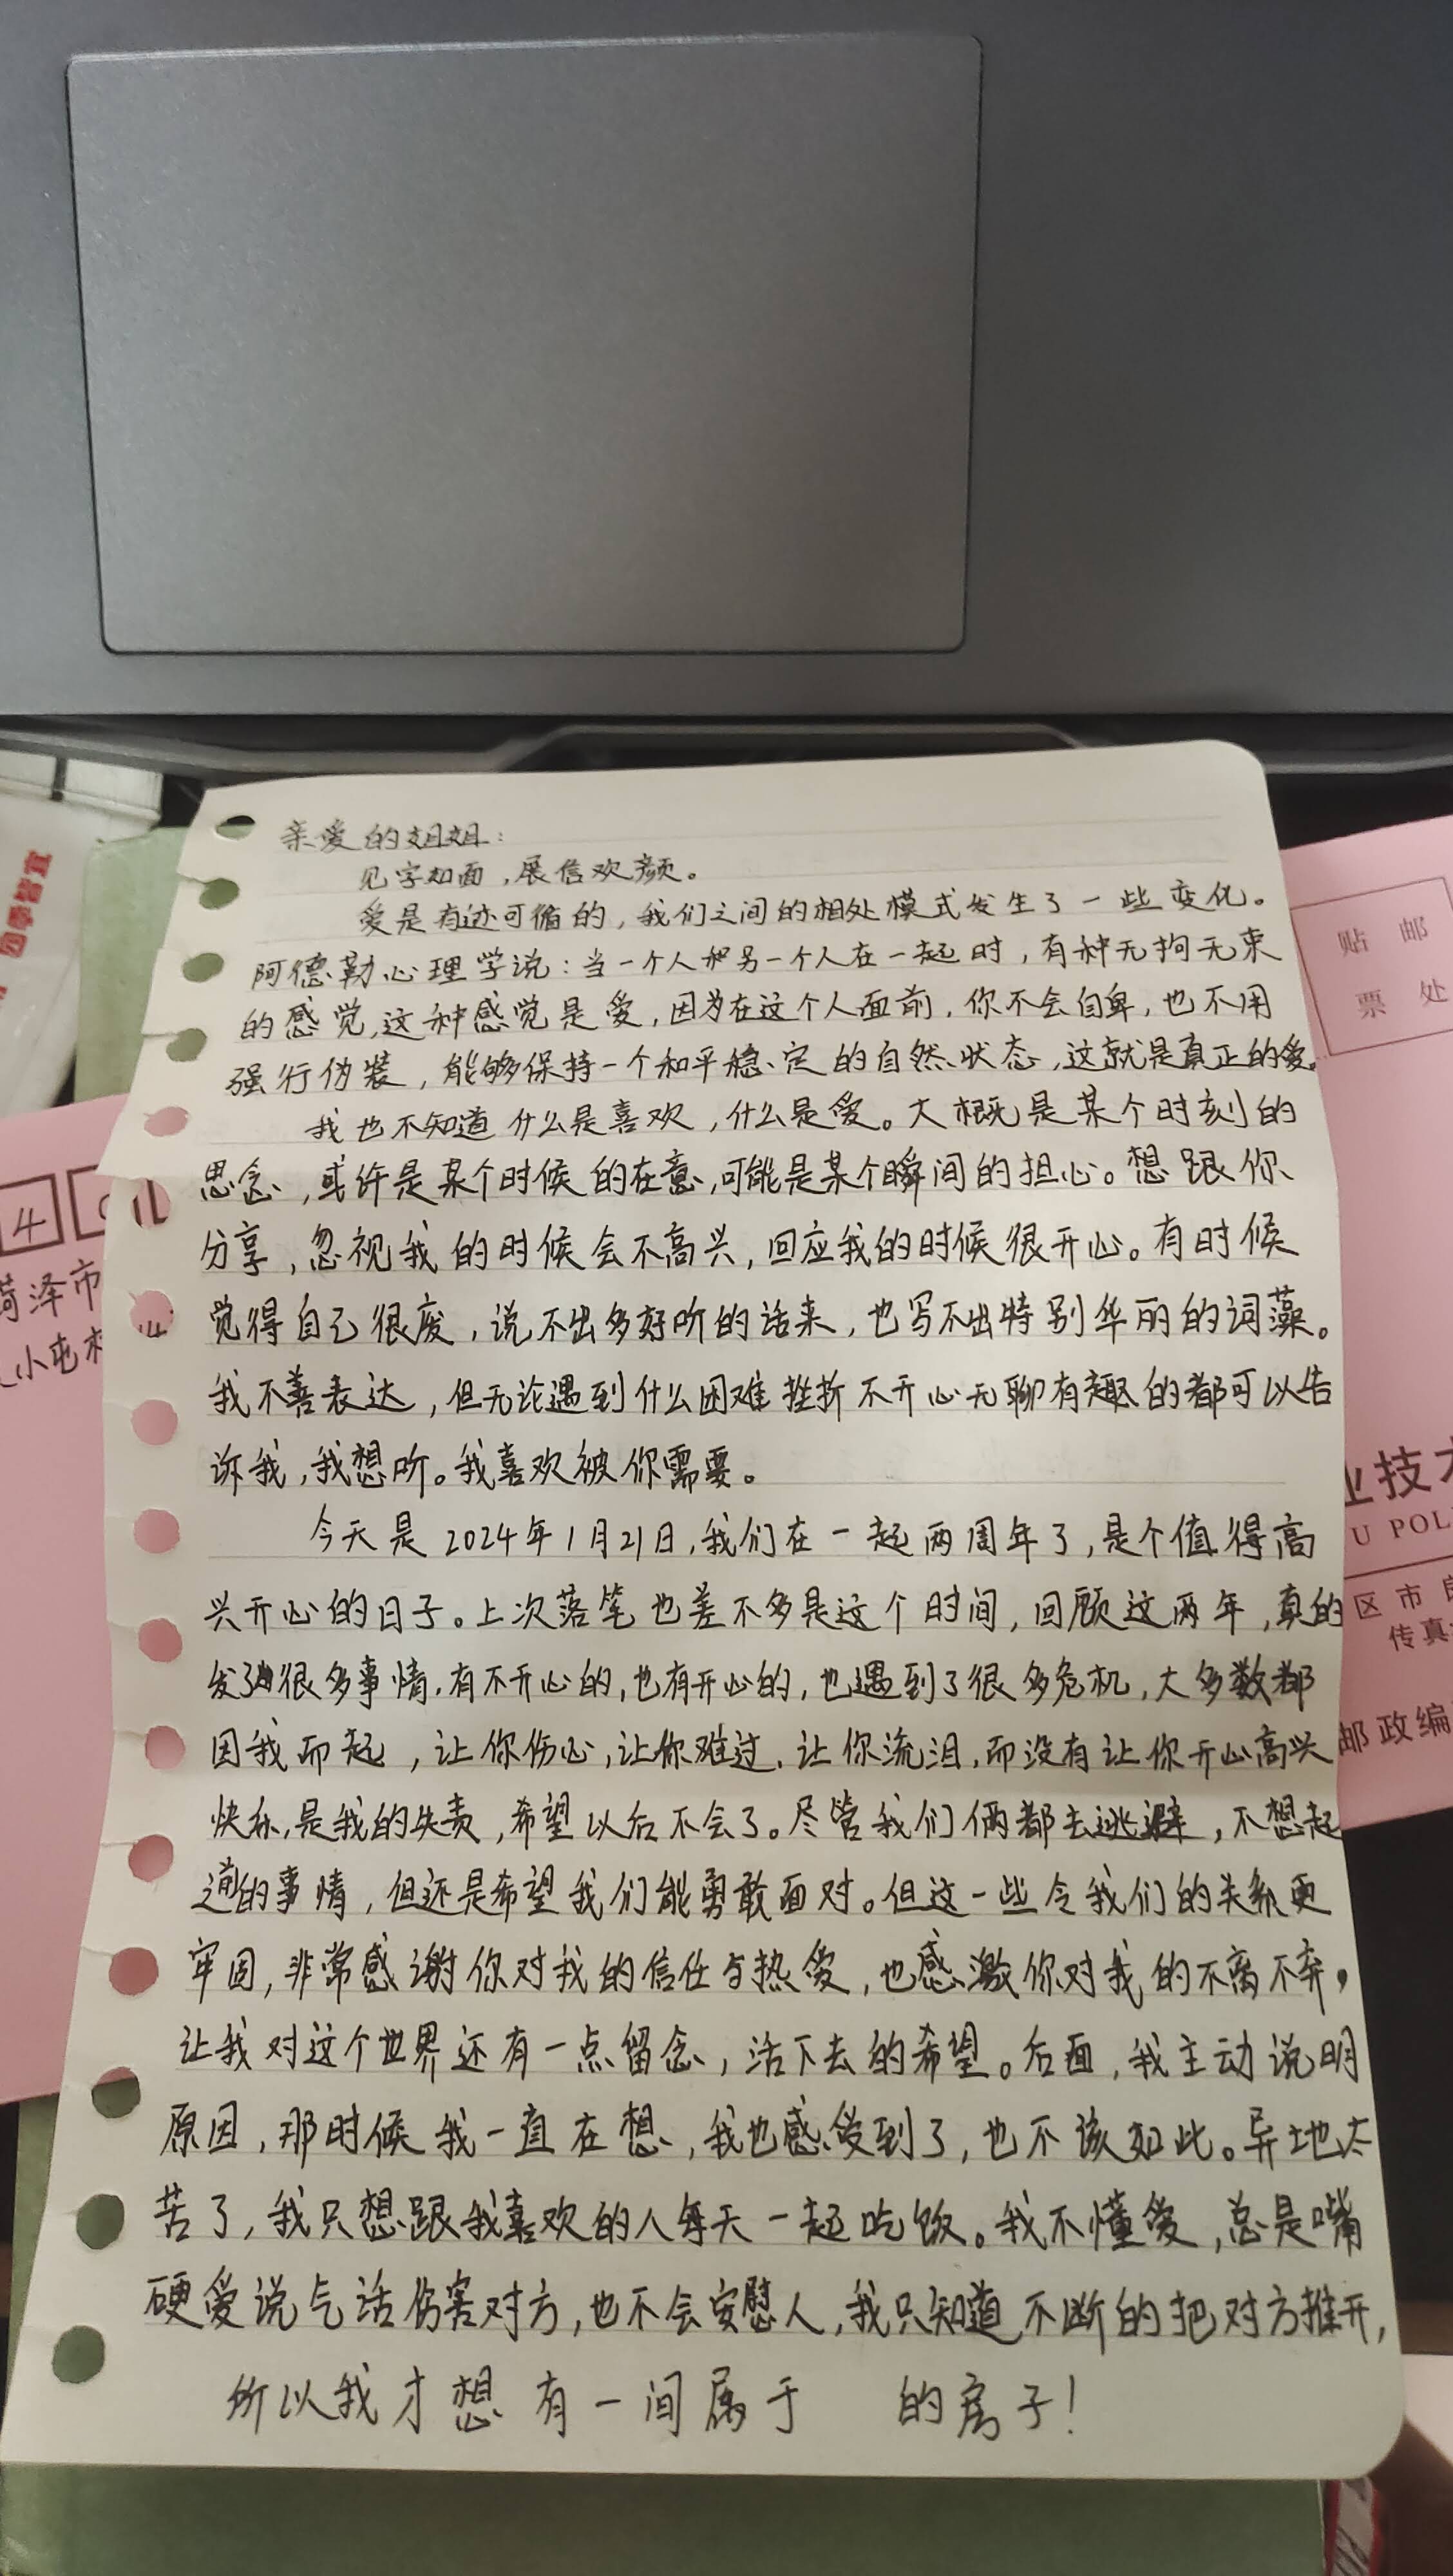 亲爱的姐姐：
见字如面，展信欢颜。
爱是有迹可循的，我们之间的相处模式发生了一些变化。
阿德勒心理学说：当一个人和另一个人在一起时，有种无拘无束
的感觉，这种感觉是爱，因为在这个人面前，你不会自卑，也不用
强行伪装，能够保持一个和平稳定的自然状态，这就是真正的爱。
我也不知道什么是喜欢，什么是爱。大概是某个时刻的
思念，或许是某个时候的在意，可能是某个瞬间的担心。想跟你
分享，忽视我的时候会不高兴，回应我的时候很开心。有时候
觉得自己很废，说不出多好听的话来，也写不出特别华丽的词藻。
我不善表达，但无论遇到什么困难挫折不开心无聊有趣的都可以告
诉我，我想听。我喜欢被你需要。
今天是2024年1月21日，我们在一起两周年了，是个值得高
兴开心的日子。上次落笔也差不多是这个时间，回顾这两年，真的
发了很多事情，有不开心的，也有开心的，也遇到了很多危机，大多数都
因我而起，让你伤心，让你难过，让你流泪，而没有让你开心高兴
快乐，是我的失责，希望以后不会了。尽管我们俩都去逃避，不想起
的事情，但还是希望我们能勇敢面对。但这一些令我们的关系更
牢固，非常感谢你对我的信任与热爱，也感激你对我的不离不弃，
让我对这个世界还有一点留念，活下去的希望。后面，我主动说明
原因，那时候我一直在想，我也感受到了，也不该如此。异地太
苦了，我只想跟我喜欢的人每天一起吃饭。我不懂爱，总是嘴
硬爱说气话伤害对方，也不会安慰人，我只知道不断的把对方推开，
所以我才想有一间属于 的房子！
四季皆宜
4
菏泽市
小屯村
贴 邮
票 处
业技术
U POL
区市
传真
邮政编